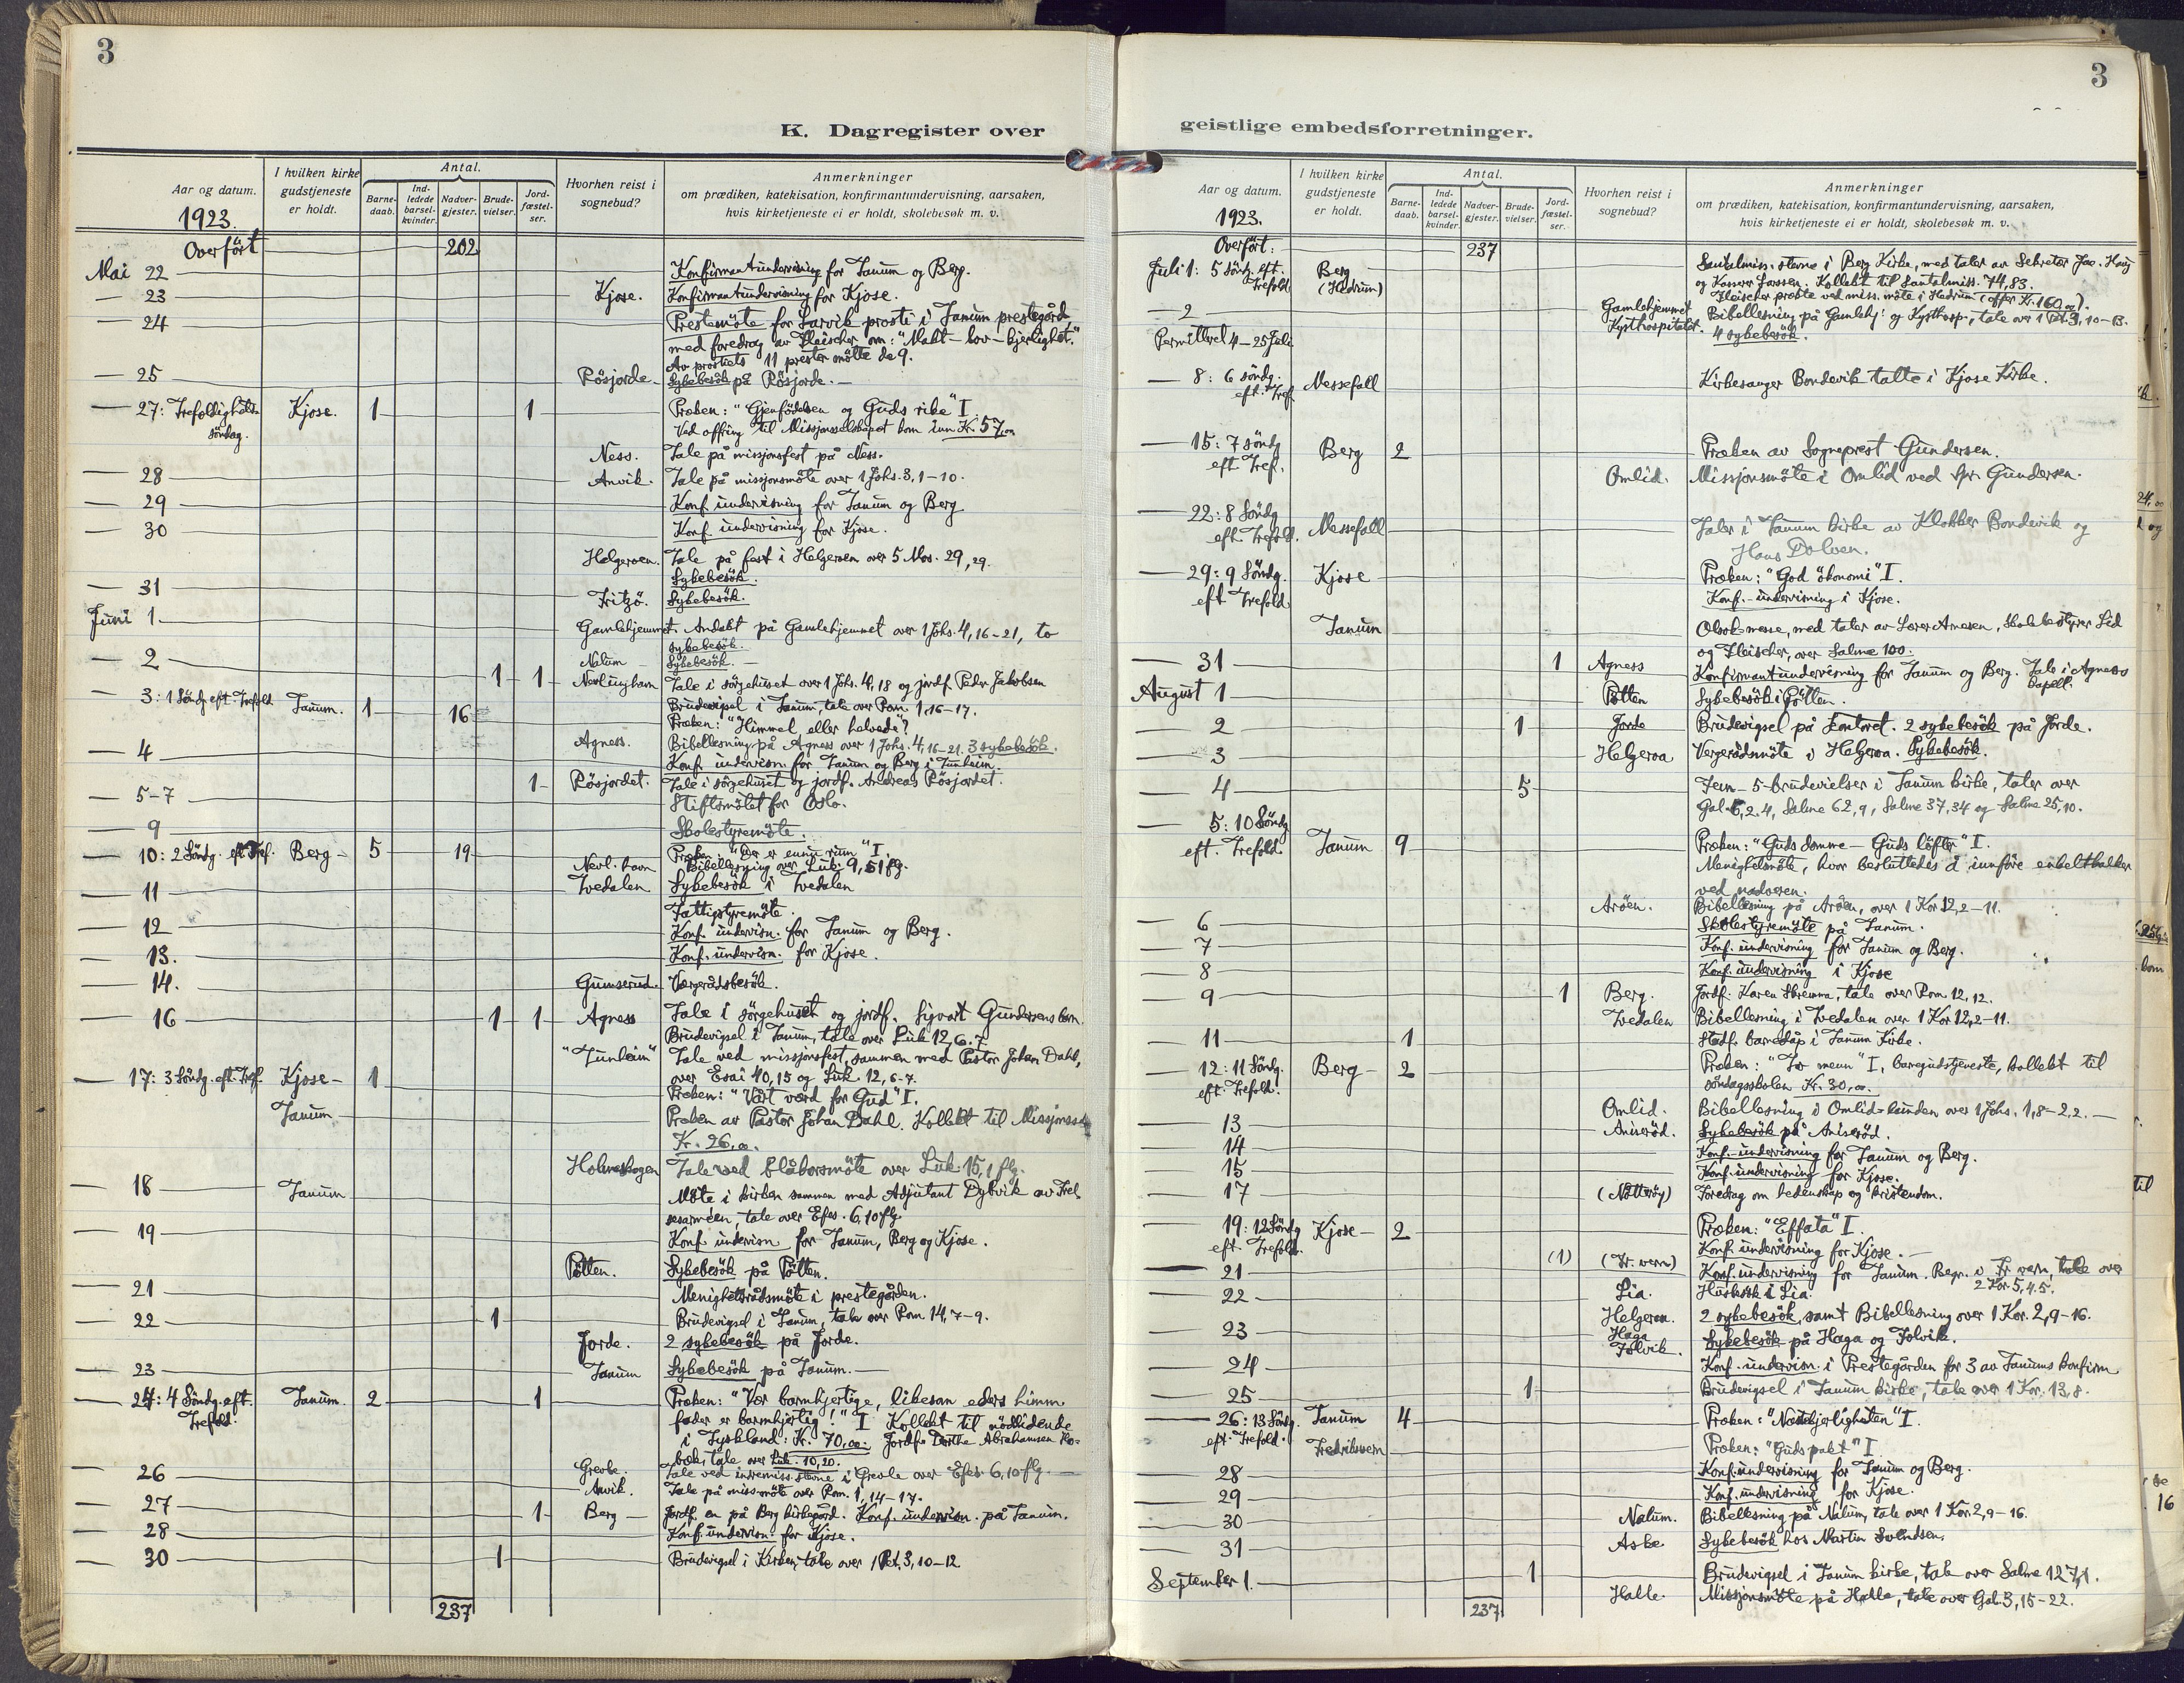 3
K. Dagregister over
Aar og datum.
1923.
I hvilken kirke gudstjeneste er holdt.
Antal.
Barne-daab.
Ind-ledede barsel-kvinder.
Nadver-gjester.
Brude-vielser.
Jord-fæstel-ser.
Hvorhen reist i sognebud?
Anmerkninger
om prædiken, katekisation, konfirmantundervisning, aarsaken,
hvis kirketjeneste ei er holdt, skolebesøk m. v.
Overført 202
Mai 22 Konfirmantundervisning for Tanum og Berg.
— 23 Kjose. Konfirmantundervisning for Kjose.
— 24 Prestemöte for Larvik prosti i Tanum prestegård
med foredrag av Fleischer om: "Makt – lov – kjerlighet."
Av prostiets 11 prester mötte de 9.
— 25 Rösjorde. Sykebesök på Rösjorde. —
— 27: Trefoldighets- Kjose. 1 1 Preken: "Gjenfödelsen og Guds rike" I.
söndag. Ved offring til Missjonsselskapet kom inn Kr. 57,00
Ness. Tale på missjonsfest på Ness.
— 28 Anvik. Tale på missjonsmöte over 1 Johs. 3, 1–10.
— 29 Konf. undervisning for Tanum og Berg
— 30 Konf. undervisning for Kjose.
Helgeroen. Tale på fest i Helgeroen over 5 Mos. 29, 29.
Sykebesök.
— 31 Fritzö. Sykebesök.
Juni 1 Gamlehjemmet. Andakt på Gamlehjemmet over 1 Johs. 4, 16–21, to
sykebesök.
— 2 Nalum Sykebesök. —
1 1 Nevlunghavn Tale i sörgehuset over 1 Johs. 4, 18 og jordf. Peder Jakobsen
Brudevigsel i Tanum, tale over Rom. 1, 16–17.
— 3: 1 Söndg eft. Trefold Tanum. 1 16 Preken: "Himmel eller helvede"?
Agness. Bibellesning på Agness over 1 Johs. 4, 16–21. 3 sykebesök.
— 4 Konf. undervisn. for Tanum og Berg i Tunheim.
1 Rösjordet. Tale i sörgehuset og jordf. Andreas Rösjordet.
— 5–7 Stiftsmötet for Oslo.
— 9 Skolestyremöte.
— 10: 2 Söndg. eft Tref. Berg 5 19 Preken: "Der er ennu rum" I.
Nevl. havn Bibellesning over Luk. 9, 51 flg.
— 11 Tvedalen Sykebesök i Tvedalen
Fattigstyremöte.
— 12 Konf. undervisn. for Tanum og Berg.
— 13. Konf. undervisn. for Kjose.
— 14. Gumserud. Vergerådsbesök.
— 16 1 1 Agness Tale i sörgehuset og jordf. Sigvart Gundersens barn.
Brudevigsel i Tanum, tale over Luk 12, 6–7
"Tunheim" Tale ved missjonsfest, sammen med Pastor Johan Dahl,
over Esai 40, 15 og Luk. 12, 6–7.
— 17: 3 Söndg. eft. Tref. Kjose 1 Preken: "Vårt værd for Gud" I.
Tanum. Preken av Pastor Johan Dahl. Kollekt til Missjonss.
Kr. 26,00.
Holmeskogen Tale ved blåkorsmöte over Luk. 15, 1 flg.
— 18 Tanum Möte i kirken sammen med Adjutant Dybvik av Frel-
sesarméen, tale over Efes. 6, 10 flg
— 19 Konf. undervisn for Tanum, Berg og Kjose.
Pötten. Sykebesök på Pötten.
— 21 Menighetsrådsmöte i prestegården.
— 22 1 Brudevigsel i Tanum, tale over Rom. 14, 7–9.
Jorde. 2 sykebesök på Jorde.
— 23 Tanum Sykebesök på Tanum. —
— 24: 4 Söndg. eft. Tanum. 2 1 Preken: "Vær barmhjertige, likesom eders himm.
Trefold. fader er barmhjertig!" I Kollekt til nödlidende
i Tyskland: Kr. 70,00. Jordf. Dorthe Abrahamsen Ro-
bek, tale over Luk. 10, 20.
— 26 Grevle. Tale ved indremiss.stevne i Grevle over Efes 6, 10 flg. —
Anvik. Tale på miss-möte over Rom. 1, 14–17.
— 27 1 Berg Jordf. en på Berg kirkegård. Konf. undervisn. på Tanum.
— 28 Konf. undervisn. for Kjose.
— 30 1 Brudevigsel i Kirken, tale over 1 Pet. 3, 10–12
237
3
geistlige embedsforretninger.
Aar og datum.
1923.
I hvilken kirke gudstjeneste er holdt.
Antal.
Barne-daab.
Ind-ledede barsel-kvinder.
Nadver-gjester.
Brude-vielser.
Jord-fæstel-ser.
Hvorhen reist i sognebud?
Anmerkninger
om prædiken, katekisation, konfirmantundervisning, aarsaken,
hvis kirketjeneste ei er holdt, skolebesøk m. v.
Overført: 237
Juli 1: 5 söndg. eft. Berg Santalmiss. stevne i Berg Kirke, med taler av Sekretær Jac. Haug
Trefold. (Hedrum) og Kasserer Larssen. Kollekt til Santalmiss. 74,83.
Fleischer prekte ved miss. möte i Hedrum (offer Kr. 160,00).
— 2 Gamlehjemmet Bibellesning på Gamlehj. og Kysthosp., tale over 1 Pet 3, 10–13.
Kysthospitalet. 4 sykebesök.
Permittert 4–25 Juli
— 8: 6 söndg. Messefall Kirkesanger Bondevik talte i Kjose Kirke.
eft. Tref.
— 15: 7 söndg Berg 2 Preken av Sogneprest Gundersen.
eft Tref. Omlid. Missjonsmöte i Omlid ved Spr. Gundersen.
— 22: 8 Söndg Messefall Taler i Tanum kirke av Klokker Bondevik og
eft. Trefold. Hans Dolven.
— 29: 9 Söndg. Kjose Preken: "God ökonomi" I.
eft Trefold. Konf.-undervisning i Kjose.
Tanum Olsok-messe, med taler av Lærer Arnesen, Skolebestyrer Lid
og Fleischer, over Salme 100.
— 31 1 Agness Konfirmantundervisning for Tanum og Berg. Tale i Agness
kapell.
August 1 Pötten Sykebesök i Pötten.
— 2 1 Jorde Brudevigsel på kontoret. 2 sykebesök på Jorde.
— 3 Helgeroa Vergerådsmöte i Helgeroa. Sykebesök.
— 4 5 Fem – 5 – brudevielser i Tanum kirke, taler over
Gal. 6, 2. 4, Salme 62, 9, Salme 37, 34 og Salme 25, 10.
— 5: 10 Söndg Tanum 9 Preken: "Guds domme – Guds löfter" I.
eft. Trefold. Menighetsmöte, hvor besluttedes å innföre enkeltkalker
ved nadveren.
Aröen. Bibellesning på Aröen, over 1 Kor 12, 2–11.
— 6 Skolestyremöte på Tanum.
— 7 Konf. undervisning for Tanum og Berg.
— 8 Konf. undervisning i Kjose
— 9 1 Berg. Jordf. Karen Skremma, tale over Rom. 12, 12.
Tvedalen Bibellesning i Tvedalen over 1 Kor 12, 2–11.
— 11 1 Stadf. barnedåp i Tanum Kirke.
— 12: 11 Söndg. Berg 2 Preken: "To menn" I, barnegudstjeneste, kollekt til
eft. Trefold. söndagsskolen Kr. 30,00.
Omlid. Bibellesning i Omlid-kunden over 1 Johs. 1, 8–2, 2. —
— 13 Aniseröd. Sykebesök på Aniseröd.
— 14 Konf.-undervisning for Tanum og Berg.
— 15 Konf. undervisning for Kjose.
— 17 (Nötteröy) Foredrag om hedenskap og kristendom.
— 19: 12 Söndg Kjose 2 Preken: "Effata" I.
eft. Trefold. Konf. undervisning for Kjose. —
— 21 (1) (Fr. vern) Konf. undervisning for Tanum. Begr. i Fr vern, tale over
2 Kor. 5, 4. 5.
— 22 Lia. Husbesök i Lia.
Helgeroa. 2 sykebesök, samt Bibellesning over 1 Kor. 2, 9–16.
— 23 Haga Sykebesök på Haga og Folvik.
Folvik.
— 24 Konf. undervisn. i Prestegården for 3 av Tanums konfirm.
— 25 1 Brudevigsel i Tanum kirke, tale over 1 Kor. 13, 8.
— 26: 13 Söndg. Tanum 4 Preken: "Nestekjerligheten" I.
eft. Trefold. Fredriksvern Preken: "Guds pakt" I
— 28 Konf. undervisning for Tanum og Berg.
— 29 Konf. undervisning for Kjose.
— 30 Nalum. Bibellesning på Nalum, tale over 1 Kor. 2, 9–16.
— 31 Aske Sykebesök hos Martin Svendsen.
September 1. 1 Brudevigsel i Tanum kirke, tale over Salme 127, 1.
Halle. Missjonsmöte på Halle, tale over Gal. 3, 15–22.
237